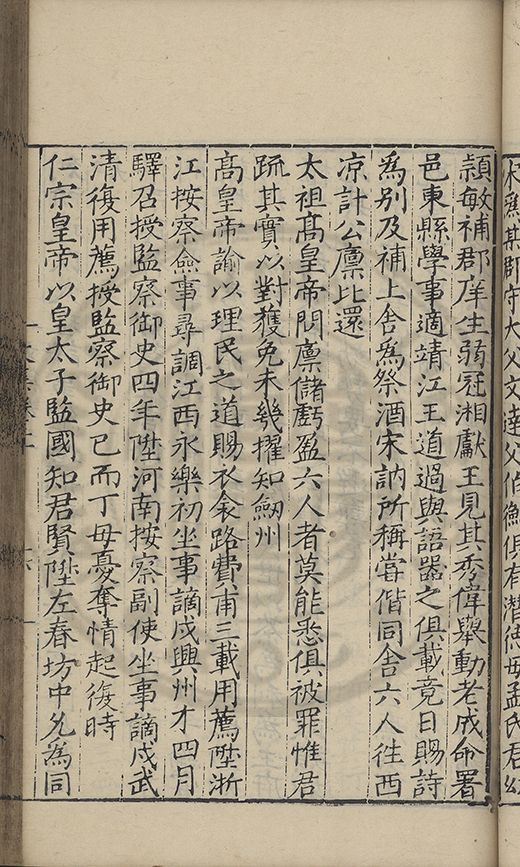 宋爲某郡守大父文達父伯衡俱有潛德母孟氏君幼
頴敏補郡庠生弱冠湘獻王見其秀偉舉動老成命署
邑東縣學事適靖江王道過與語器之俱載竟日賜詩
爲別及補上舍爲祭酒宋訥所稱嘗偕同舍六人徃西
凉計公廩比還
太祖髙皇帝問廩儲虧盈六人者莫能悉俱被罪惟君
䟽其實以對獲免未幾擢知劔州
髙皇帝諭以理民之道賜衣衾路費甫三載用薦陞浙
江按察僉事尋調江西永樂初坐事謫戍興州才四月
驛召授監察御史四年陞河南按察副使坐事謫戍武
清復用薦授監察御史已而丁母憂奪情起復時
仁宗皇帝以皇太子監國知君賢陞左春坊中允為同